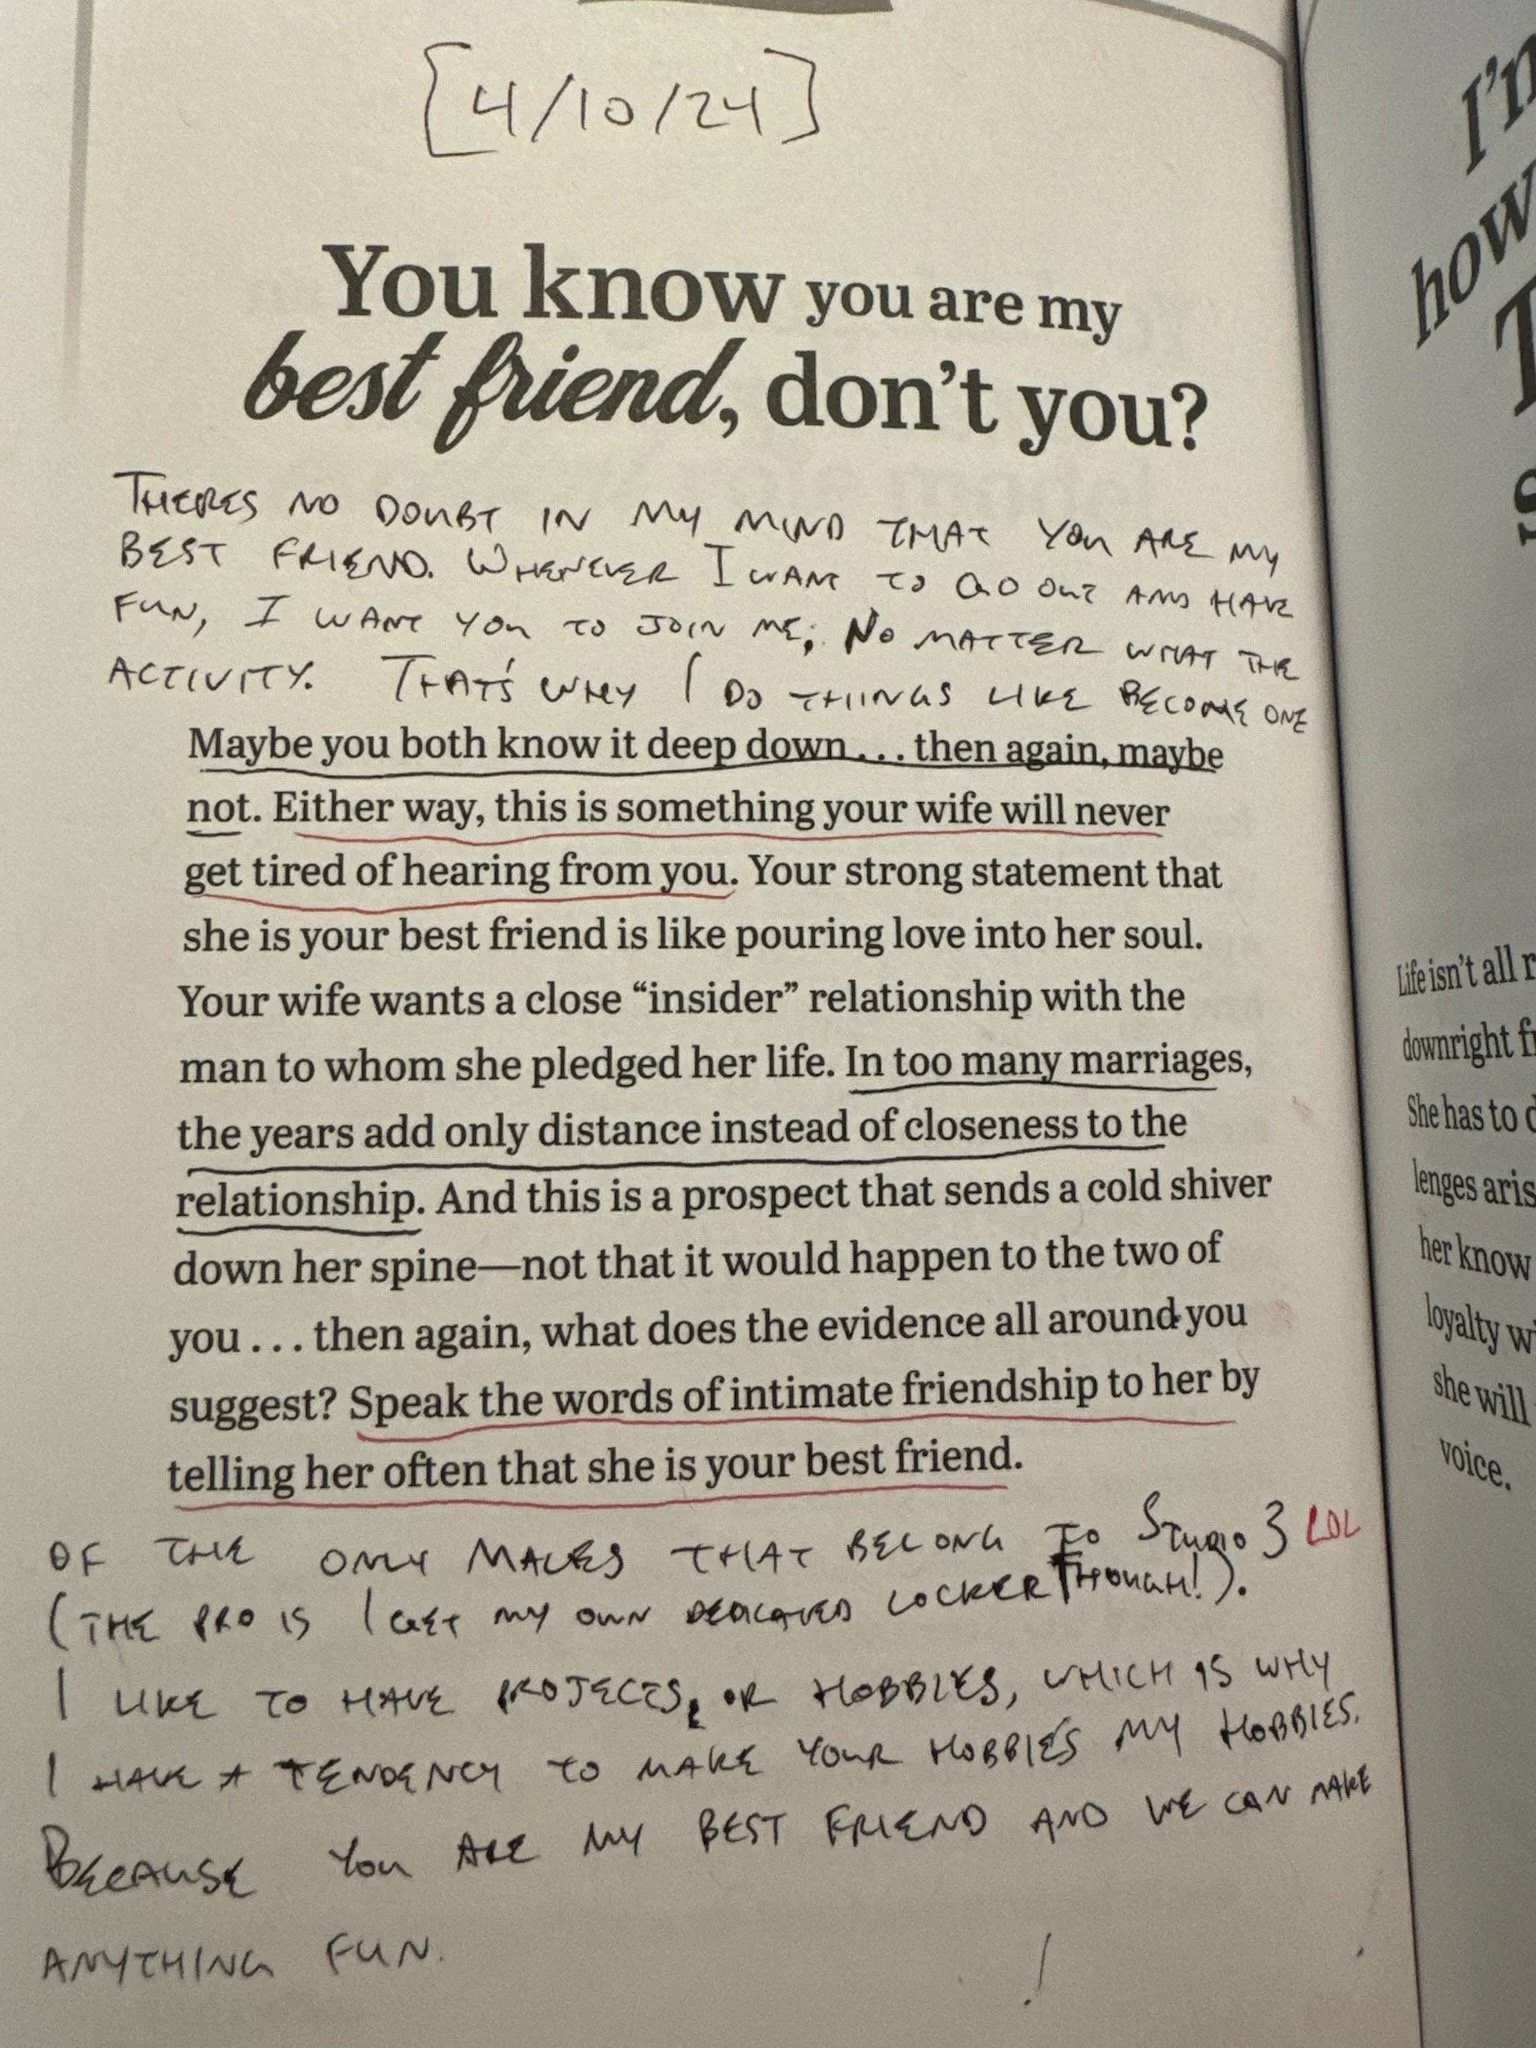 [4/10/24]
You know you are my
best friend, don't you?
THERES NO DOUBT IN MY MIND THAT YOU ARE MY
BEST FRIEND. WHENEVER I WANT TO GO OUT AND HAVE
FUN, I WANT YOU TO JOIN ME; NO MATTER WHAT THE
ACTIVITY. THAT'S WHY I DO THINGS LIKE BECOME ONE
Maybe you both know it deep down . . . then again, maybe
not. Either way, this is something your wife will never
get tired of hearing from you. Your strong statement that
she is your best friend is like pouring love into her soul.
Your wife wants a close “insider” relationship with the
man to whom she pledged her life. In too many marriages,
the years add only distance instead of closeness to the
relationship. And this is a prospect that sends a cold shiver
down her spine—not that it would happen to the two of
you . . . then again, what does the evidence all around you
suggest? Speak the words of intimate friendship to her by
telling her often that she is your best friend.
OF THE ONLY MALES THAT BELONG TO STUDIO 3 LOL
(THE PRO IS I GET MY OWN DEDICATED LOCKER THOUGH!).
I LIKE TO HAVE PROJECTS, OR HOBBIES, WHICH IS WHY
I HAVE A TENDENCY TO MAKE YOUR HOBBIES MY HOBBIES.
BECAUSE YOU ARE MY BEST FRIEND AND WE CAN MAKE
ANYTHING FUN.
I'm
how
Life isn't all
downright
She has to
lenges
her know
loyalty
she will
voice.